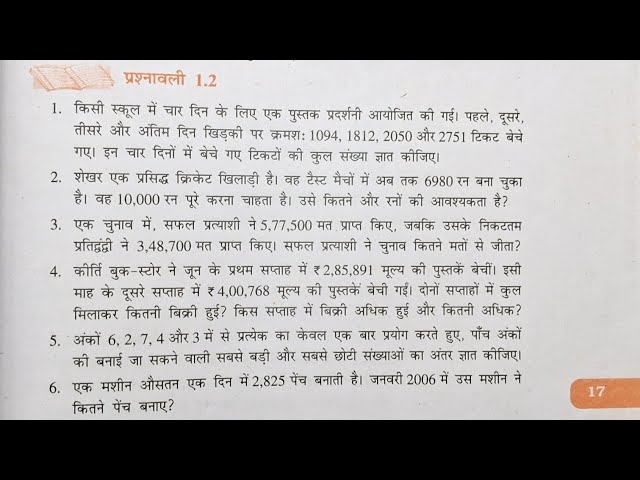 प्रश्नावली 1.2
1. किसी स्कूल में चार दिन के लिए एक पुस्तक प्रदर्शनी आयोजित की गई। पहले, दूसरे,
तीसरे और अंतिम दिन खिड़की पर क्रमश: 1094, 1812, 2050 और 2751 टिकट बेचे
गए। इन चार दिनों में बेचे गए टिकटों की कुल संख्या ज्ञात कीजिए।
2. शेखर एक प्रसिद्ध क्रिकेट खिलाड़ी है। वह टैस्ट मैचों में अब तक 6980 रन बना चुका
है। वह 10,000 रन पूरे करना चाहता है। उसे कितने और रनों की आवश्यकता है?
3. एक चुनाव में, सफल प्रत्याशी ने 5,77,500 मत प्राप्त किए, जबकि उसके निकटतम
प्रतिद्वंद्वी ने 3,48,700 मत प्राप्त किए। सफल प्रत्याशी ने चुनाव कितने मतों से जीता?
4. कीर्ति बुक-स्टोर ने जून के प्रथम सप्ताह में ₹ 2,85,891 मूल्य की पुस्तकें बेचीं। इसी
माह के दूसरे सप्ताह में ₹ 4,00,768 मूल्य की पुस्तकें बेची गईं। दोनों सप्ताहों में कुल
मिलाकर कितनी बिक्री हुई? किस सप्ताह में बिक्री अधिक हुई और कितनी अधिक?
5. अंकों 6, 2, 7, 4 और 3 में से प्रत्येक का केवल एक बार प्रयोग करते हुए, पाँच अंकों
की बनाई जा सकने वाली सबसे बड़ी और सबसे छोटी संख्याओं का अंतर ज्ञात कीजिए।
6. एक मशीन औसतन एक दिन में 2,825 पेंच बनाती है। जनवरी 2006 में उस मशीन ने
कितने पेंच बनाए?
17